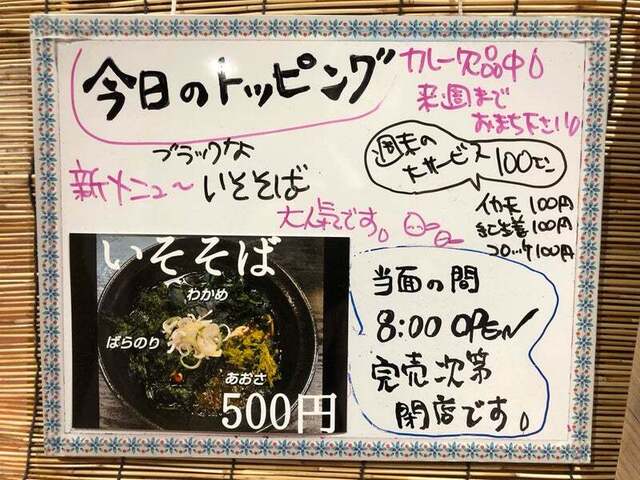 今日のトッピング
カレー欠品中
来週まで
おまち下さい
ブラックな
新メニュー〜いそそば
大人気です。
週末の
大サービス
100でン
イカ天 100円
紅生姜 100円
コロッケ 100円
いそそば
わかめ
ばらのり
あおさ
500円
当面の間
8:00 OPEN
完売次第
閉店です。